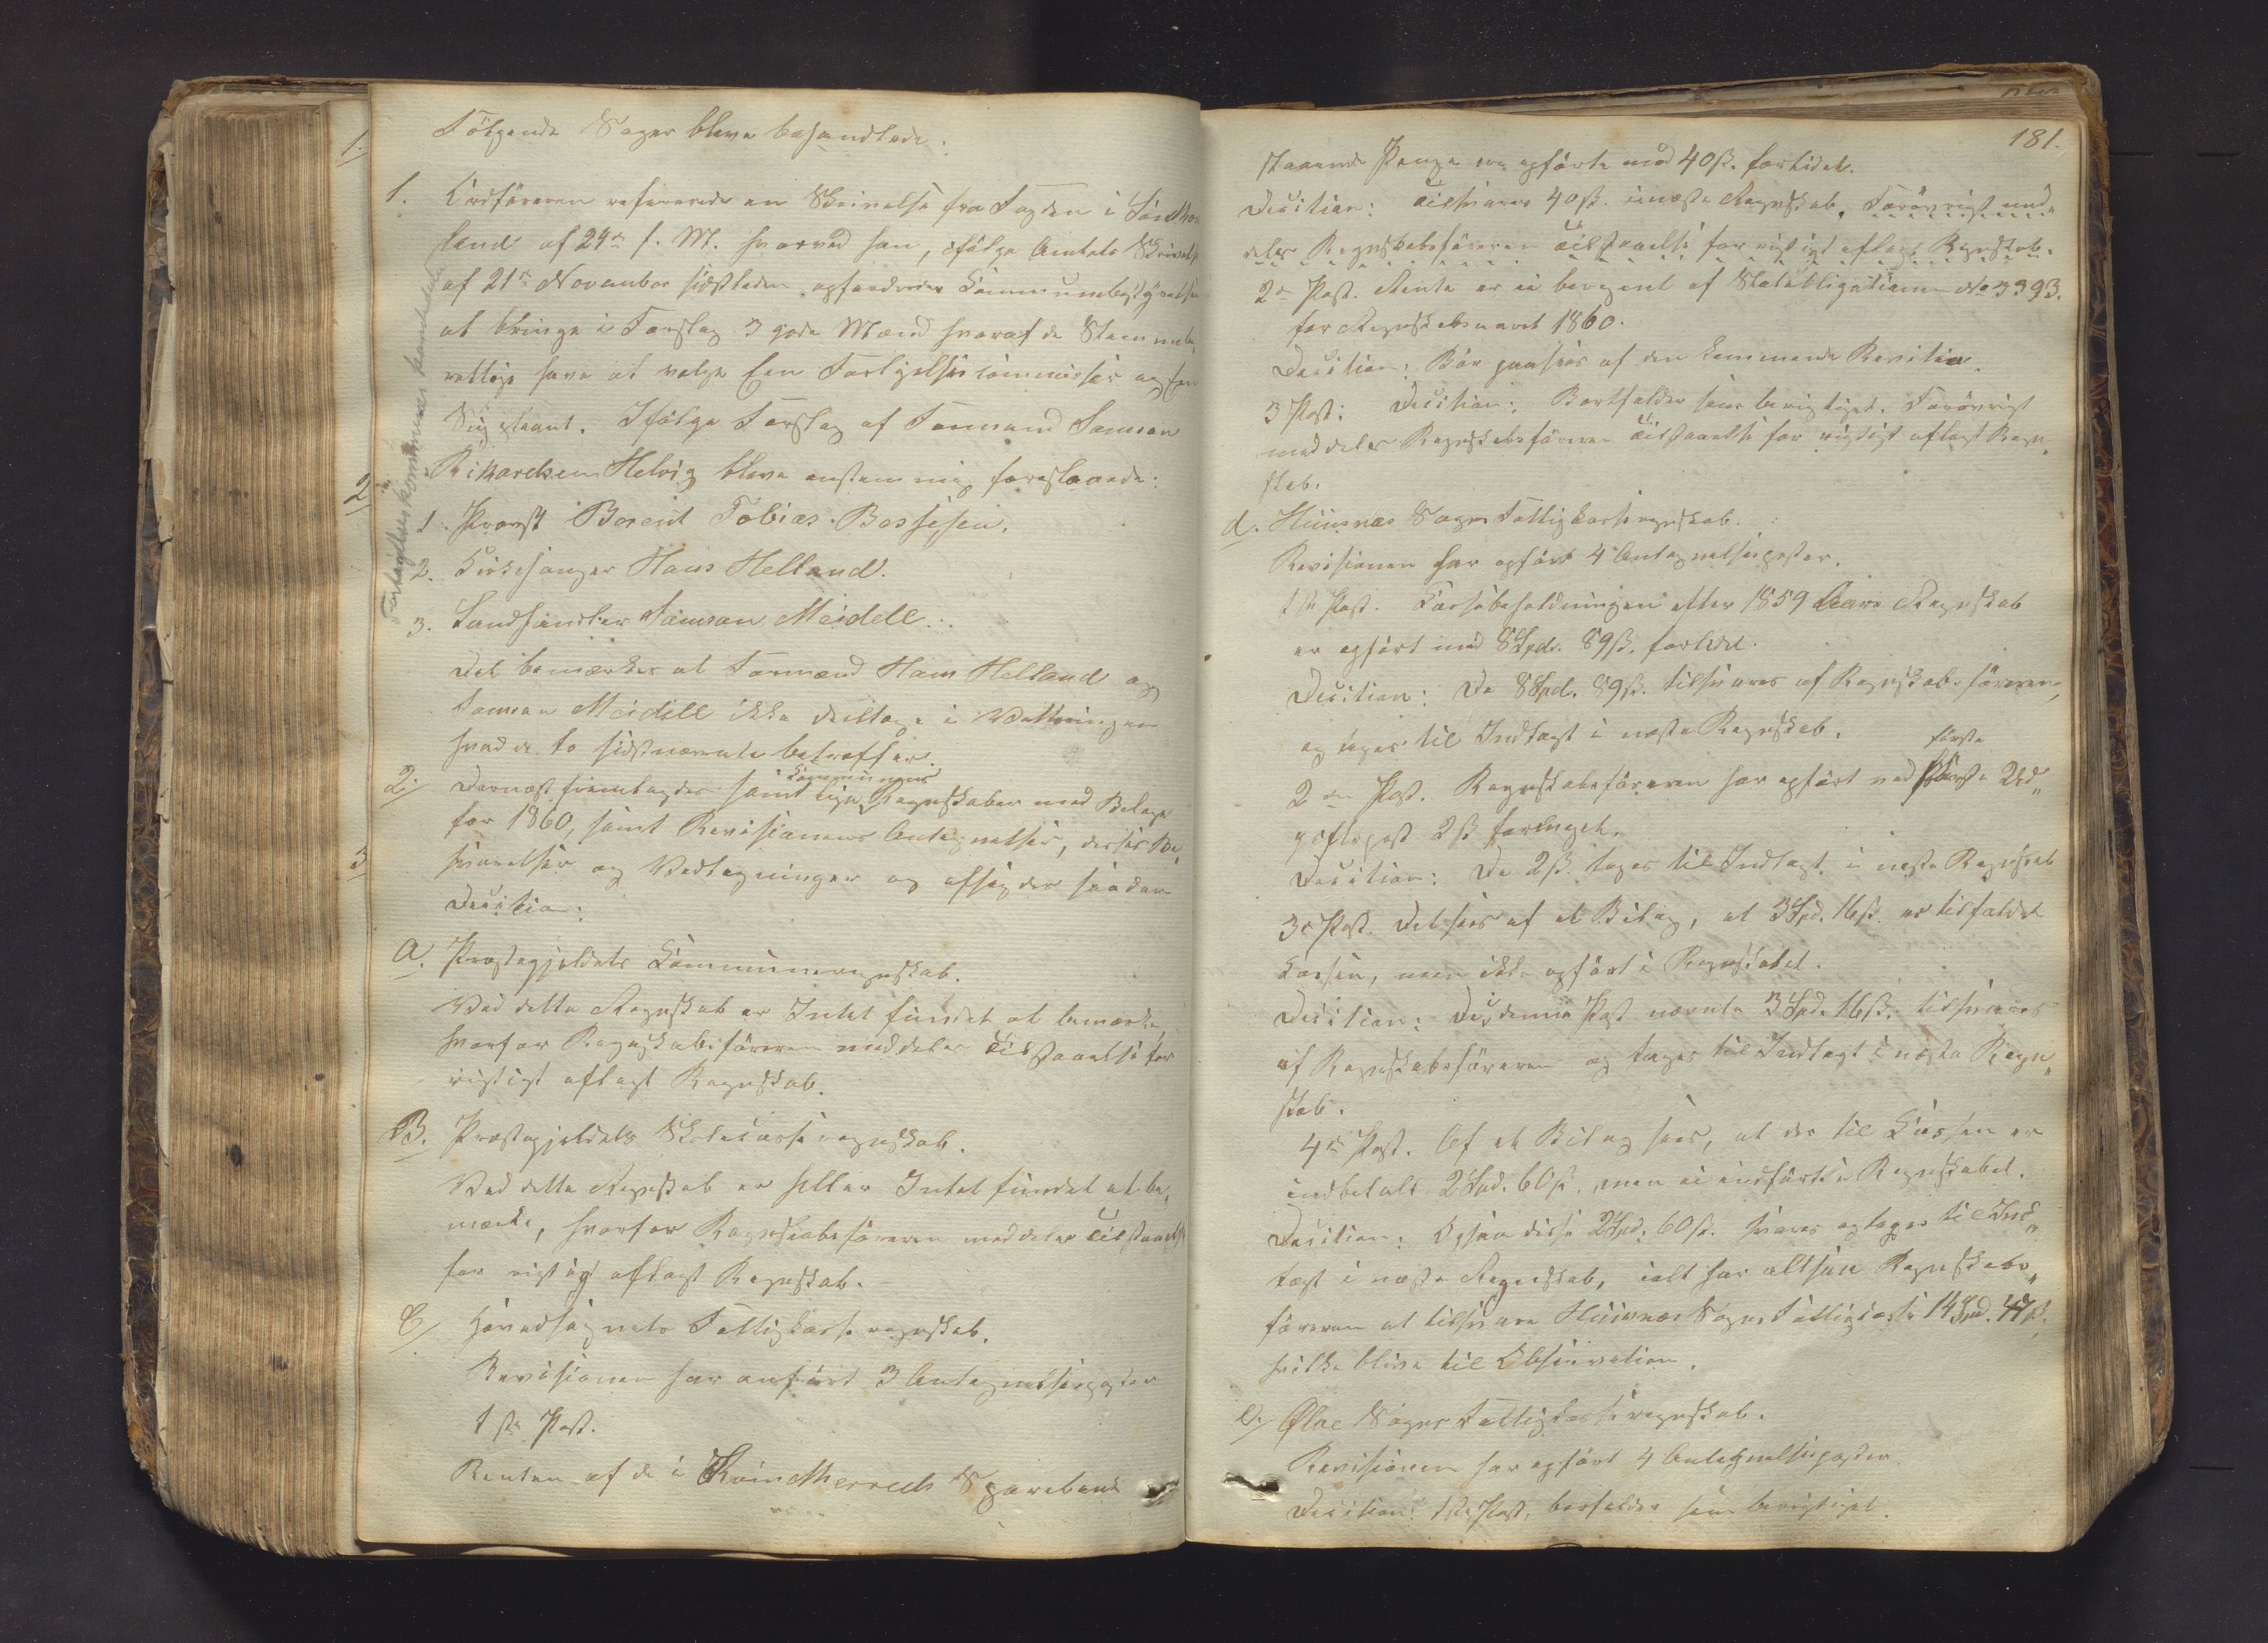 Følgende Sager bleve behandlede:
1. Ordføreren refererede en Skrivelse fra Fogden i Søndhord
land af 24de f. M. hvorved han, ifølge Amtets Skrivelse
af 21de November sidstleden opfordrer Kommunebestyrelsen
at bringe i Forslag 3 gode Mænd hvoraf de Stemmebe,
rettige have at vælge Een Forligelsescommissær og Een
Supleant. Ifølge Forslag af Formand Samson
Rikardsen Helvig bleve enstemmig foreslaaede:
1. Provst Berent Tobias Bessesen.
2. Kirkesanger Hans Helland.
3. Landhandler Samson Meidell.
Det bemærkes at Formænd Hans Helland og
Samson Meidell ikke deeltoge i Voteringen
hvad de to sidstnævnte betræffer.
2. Dernæst fremlagdes samtlige Kommunens Regnskaber med Bilage
for 1860, samt Revisionens Antegnelser, disses Be,
svarelser og Vedtegninger og afsagdes saadan
Decision:
a. Præstegjeldets Kommuneregnskab.
Ved dette Regnskab er Intet fundet at bemærke,
hvorfor Regnskabsføreren meddeles Tilstaaelse for
rigtigt aflagt Regnskab.
B. Præstegjeldets Skolekasseregnskab.
Ved dette Regnskab er heller Intet fundet at be,
mærke, hvorfor Regnskabsføreren meddeles Tilstaaelse
for rigtigt aflagt Regnskab.
C. Hovedsognets Fattigkasseregnskab.
Revisionen har anført 3 Antegnelsesposter
1ste Post.
Renten af de i Kvindherreds Sparebank
Forligelseskommissær
1.
2
3
181.
staaende Penge ere opførte med 40 ß. forlidet.
Decision: Tilsvares 40 ß. i næste Regnskab. Forøvrigt med,
deles Regnskabsføreren Tilstaaelse for rigtigt aflagt Regnskab.
2den Post. Rente er ei beregnet af Statsobligationen No 3393.
for Regnskabsaaret 1860.
Decision: Bør paasees af den kommende Revision.
3 Post: Decision: Bortfalder som berigtiget. Forøvrigt
meddeles Regnskabsføreren Tilstaaelse for rigtigt aflagt Regn,
skab.
d. Huusnæs Sogns Fattigkasseregnskab.
Revisionen har opført 4 Antegnelsesposter.
1ste Post. Kassebeholdningen efter 1859 Aars Regnskab
er opført med 8 Spdr. 89 ß. forlidet.
Decision: De 8 Spd. 89 ß. tilsvares af Regnskabsføreren,
og tages til Indtægt i næste Regnskab.
2den Post. Regnskabsføreren har opført ved første Ud,
giftspost 2 ß formeget.
Decision: De 2 ß. tages til Indtægt i næste Regnskab
3de Post. Det sees af et Bilag, at 3 Spd. 16 ß. er tilfaldet
Kassen, men ikke opført i Regnskabet.
Decision: De i denne Post nævnte 3 Spd. 16 ß. tilsvares
af Regnskabsføreren og tages til Indtægt i næste Regn,
skab.
4de Post. Af et Bilag sees, at der til Kassen er
indbetalt 2 Spd. 60 ß. men ei indført i Regnskabet.
Decision: Ogsaa disse 2 Spd. 60 ß. svares og tages til Ind,
tægt i næste Regnskab, ialt har altsaa Regnskabs,
føreren at tilsvare Huusnæs Sogns Fattigkasse 14 Spd. 47 ß.
hvilke blive til Observation.
e. Ølve Sogns Fattigkasseregnskab.
Revisionen har opført 4 Antegnelsesposter.
Decision: 1ste Post, bortfalder som berigtiget.